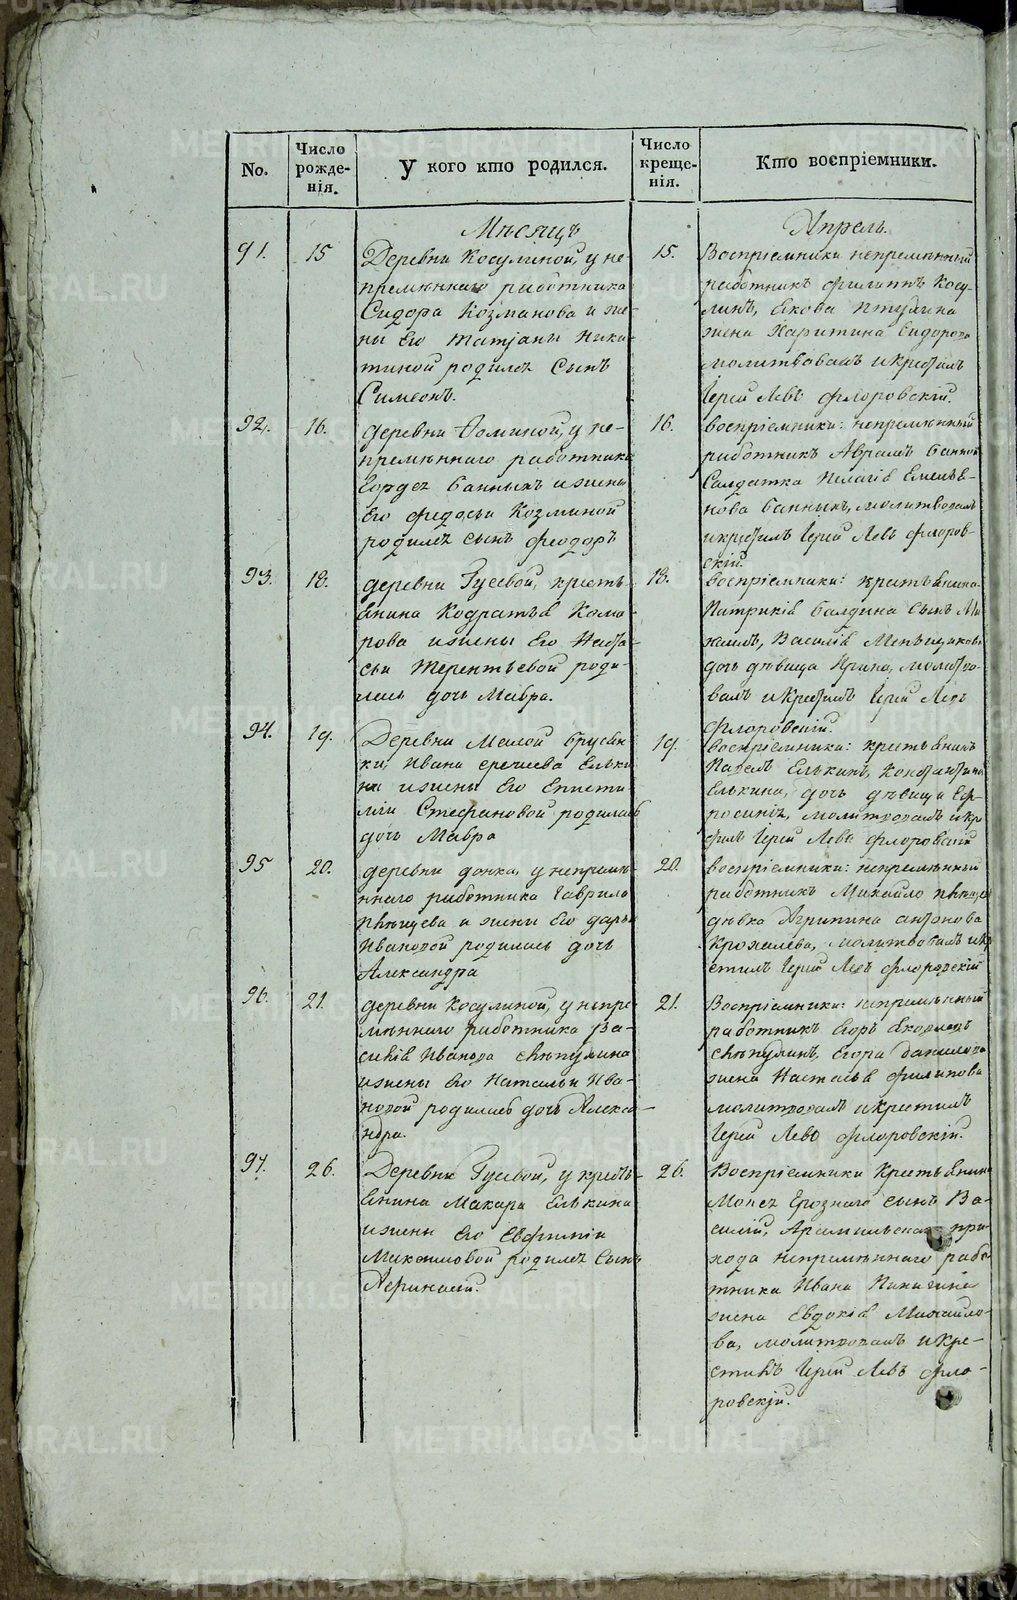 No.
Число рожде-нія.
У кого кто родился.
Число креще-нія.
Кто воспріемники.
Мѣсяцъ
Апрель.
91.
15
Деревни Косулиной, у не-
премѣннаго работника
Сидора Козманова и же-
ны Его Татјаны Ники-
тиной родился Сынъ
Симеонъ.
15.
Воспріемники непремѣнный
работникъ Филиппъ Косу-
линъ,
жена Харитина Сидорова
молитвовалъ и крестилъ
Іерей Левъ Флоровскій.
92.
16.
деревни у не-
премѣннаго работника
Гордея Банныхъ и жены
Его Федосьи Козминой
родился сынъ Феодоръ
16.
воспріемники: непремѣнный
работникъ Аврамъ
Салдатка Пелагія Емелья-
нова Банныхъ, молитвовалъ
и крестилъ Іерей Левъ Флоров-
скій.
93.
18.
деревни Гусевой, кресть-
янина Кодратья Кома-
рова и жены Его Наста-
сьи Терентьевой роди-
лась дочь Мавра.
18.
воспріемники: крестьянина
Патрикія Балдина сынъ Ми-
хаилъ, Василія Меньщикова
дочь дѣвица Ирина, молитво-
валъ и Крестилъ Іерей Левъ
Флоровскій.
94.
19.
Деревни Малой Брусян-
ки, Ивана Сергиева Ельки-
на и жены Его Еписти-
міи Стефановой родилась
дочь Мавра
19.
воспріемники: крестьянинъ
Павелъ Елькинъ, Константина
Елькина, дочь дѣвица Еф-
росинія, молитвовалъ и кре-
стилъ Іерей Левъ Флоровскій
95
20.
деревни у непремѣ-
ннаго работника Гаврила
Пѣнщева и жены Его Дарьи
Ивановой родилась дочь
Александра
20.
воспріемники: непремѣнный
работникъ Михайло
дѣвка Агрипина Антонова
Крохалева, молитвовалъ и кре-
стилъ Іерей Левъ Флоровскій
96.
21.
деревни Косулиной, у непре-
мѣннаго работника Ва-
силія Иванова Свѣтулина
и жены Его Натальи Ива-
новой родилась дочь Алекса-
ндра.
21.
Воспріемники: непремѣнный
работникъ Егоръ Яковлевъ
Свѣтулинъ, Егора Данилова
жена Настасья Филипова
молитвовалъ и крестилъ
Іерей Левъ Флоровскій.
97.
26.
Деревни Гусевой, у кресть-
янина Макара Елькина
и жены Его Евфиміи
Максимовой родился Сынъ
Афинасій.
26.
Воспріемники Крестьянина
сынъ Ва-
силій, Арамильскаго при-
хода непремѣннаго рабо-
тника Ивана
жена Евдокія Михайло-
ва, молитвовалъ и кре-
стилъ Іерей Левъ Фло-
ровскій.
METRIKI.GASO-URAL.RU